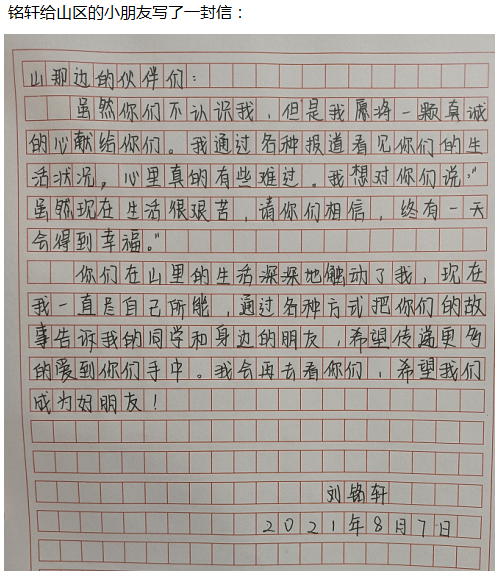 铭轩给山区的小朋友写了一封信：
山那边的伙伴们：
虽然你们不认识我，但是我愿将一颗真诚
的心献给你们。我通过各种报道看见你们的生
活状况，心里真的有些难过。我想对你们说：“
虽然现在生活很艰苦，请你们相信，终有一天
会得到幸福。”
你们在山里的生活深深地触动了我，现在
我一直尽自己所能，通过各种方式把你们的故
事告诉我的同学和身边的朋友，希望传递更多
的爱到你们手中。我会再去看你们，希望我们
成为好朋友！
刘铭轩
2021年8月7日